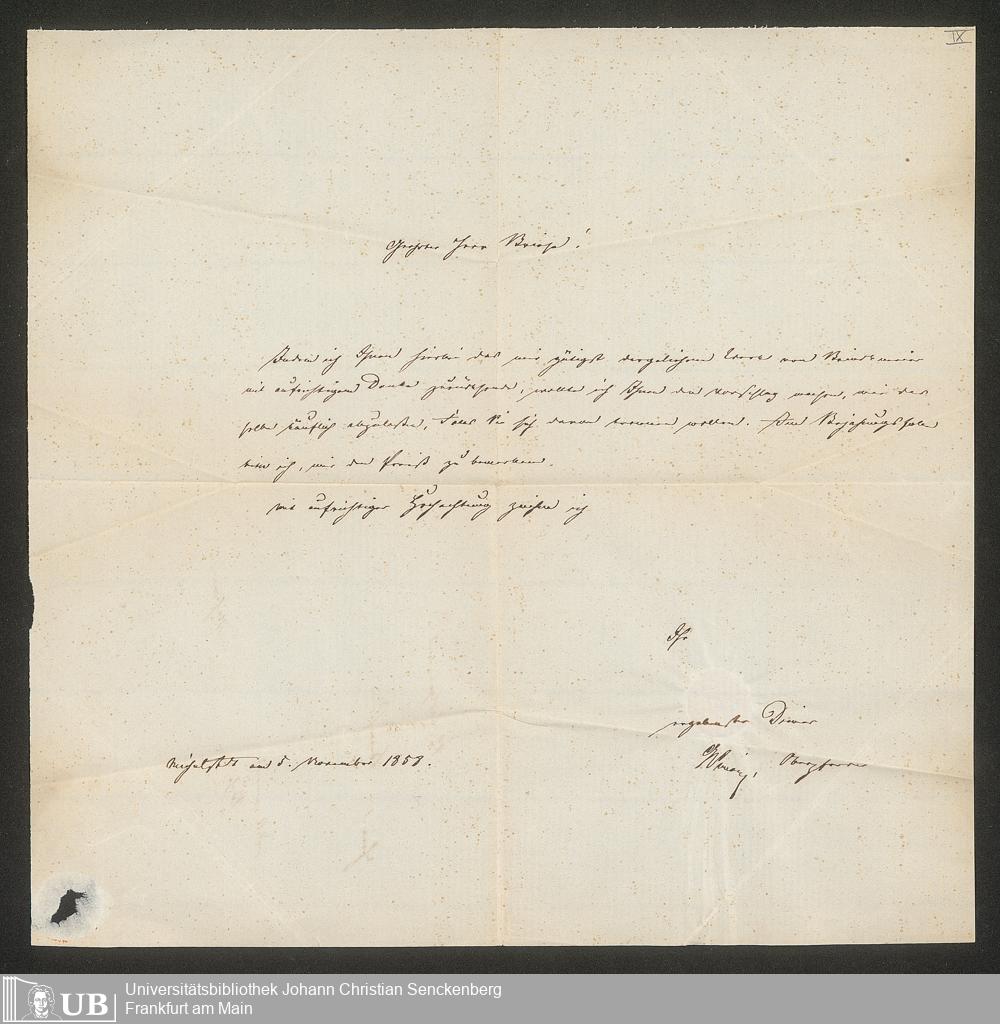 IX
Geehrter Herr
Indem ich Ihnen hierbei das mir gütigst dargeliehene Werk von
mit aufrichtigem Danke zurücksende, wollte ich Ihnen den Vorschlag machen, mir das
selbe käuflich abzulassen, Falls Sie sich davon trennen wollen. Im Bejahungsfalle
bitte ich, mir den Preiß zu bemerken.
Mit aufrichtiger Hochachtung zeichne ich
Ihr
ergebenster Diener
Oberpfarrer
Michelstadt am 5. November 1858.
UB
Universitätsbibliothek Johann Christian Senckenberg
Frankfurt am Main